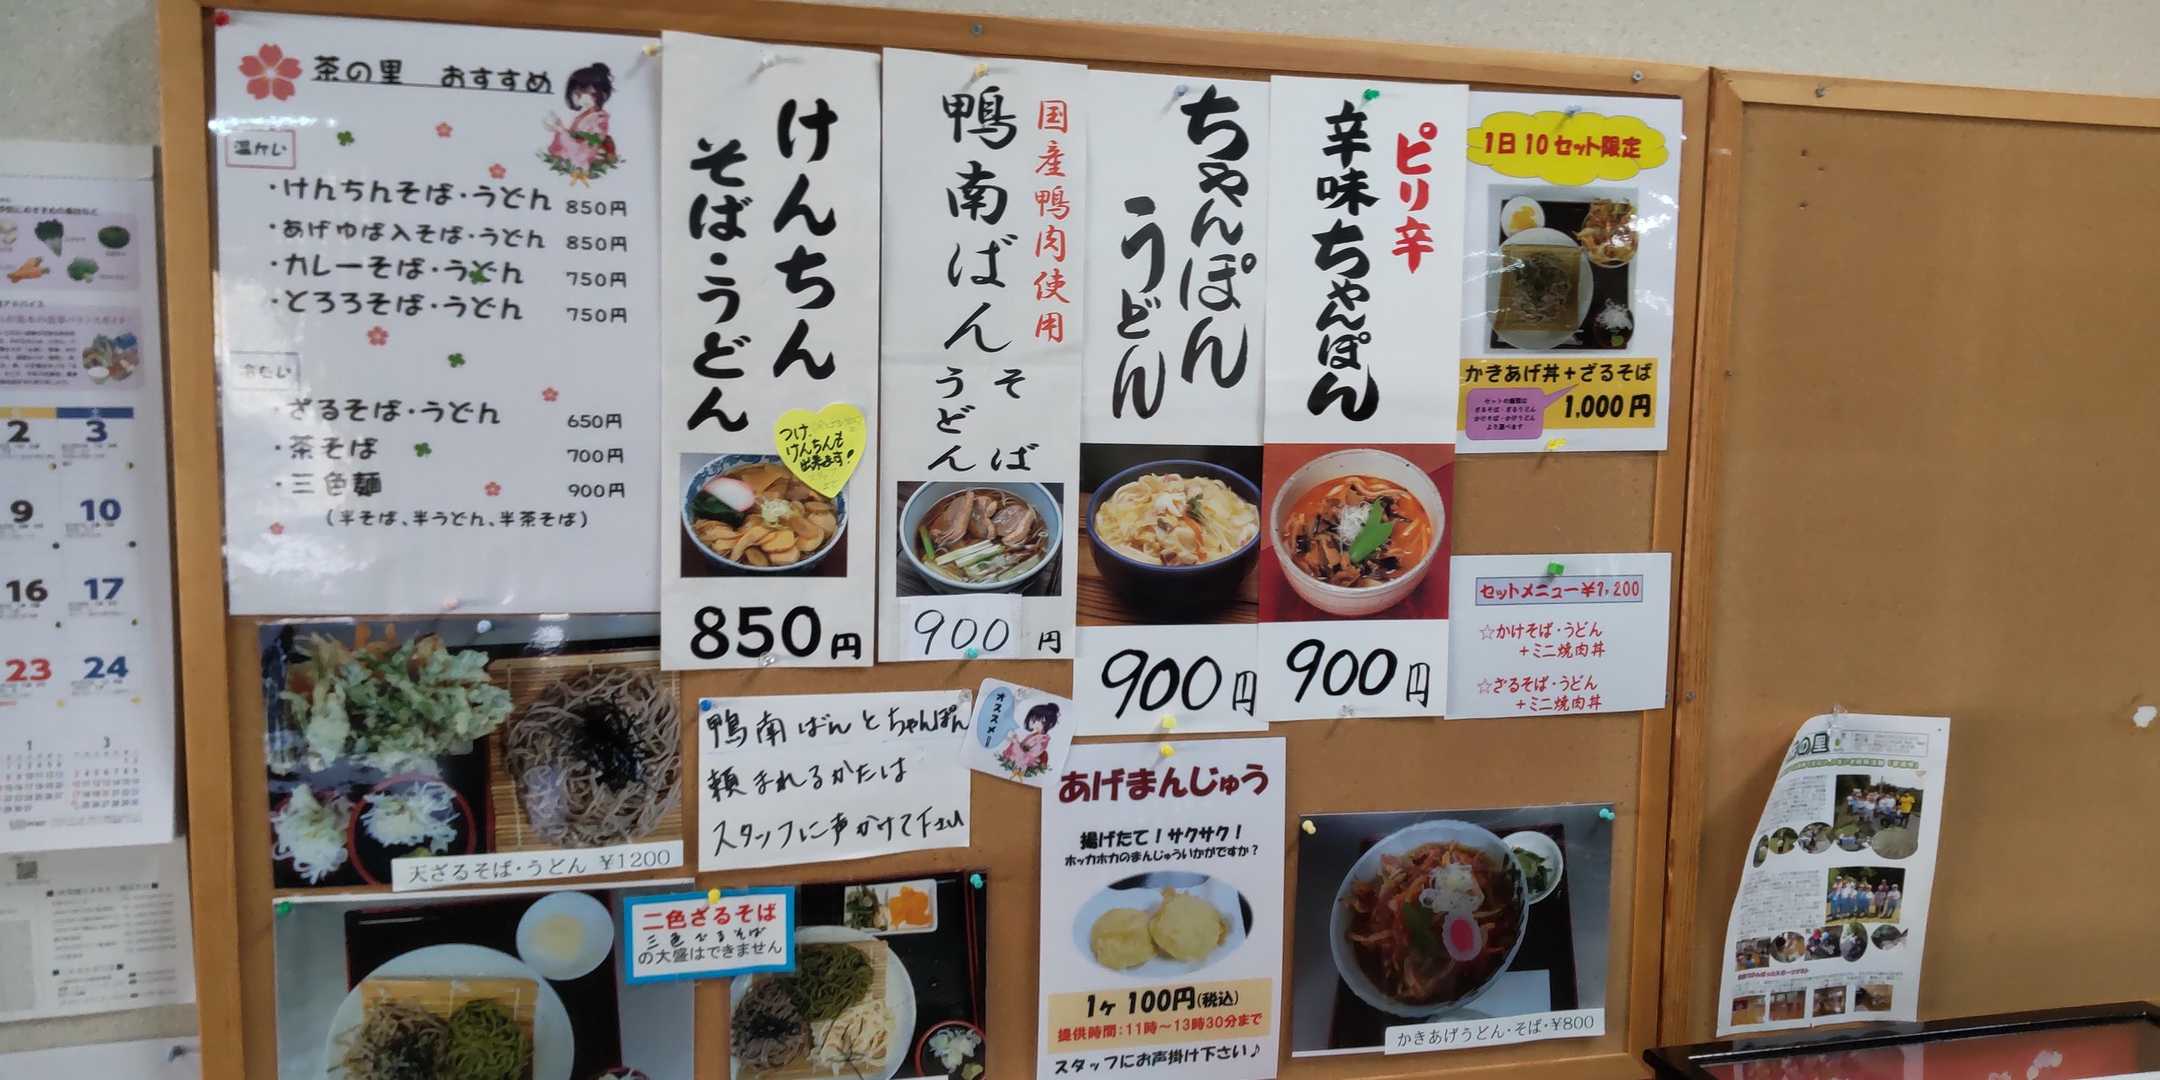 茶の里　おすすめ
温かい
・けんちんそば・うどん 850円
・あげゆば入そば・うどん 850円
・カレーそば・うどん 750円
・とろろそば・うどん 750円
冷たい
・ざるそば・うどん 650円
・茶そば 700円
・三色麺 900円
（半そば、半うどん、半茶そば）
けんちん
そば・うどん
つけ
けんちんも
出来ます!
850円
国産鴨肉使用
鴨南ばん
そば
うどん
900円
ちゃんぽん
うどん
900円
ピリ辛
辛味ちゃんぽん
900円
1日10セット限定
かきあげ丼+ざるそば
1,000円
セットメニュー¥1,200
☆かけそば・うどん
+ミニ焼肉丼
☆ざるそば・うどん
+ミニ焼肉丼
天ざるそば・うどん ¥1200
鴨南ばんとちゃんぽん
頼まれるかたは
スタッフに声かけて下さい
オススメ!
二色ざるそば
三色ざるそば
の大盛はできません
あげまんじゅう
揚げたて!サクサク!
ホッカホカのまんじゅういかがですか?
1ヶ 100円(税込)
提供時間:11時〜13時30分まで
スタッフにお声掛け下さい♪
かきあげうどん・そば・¥800
の里
2 3
9 10
16 17
23 24
1 3